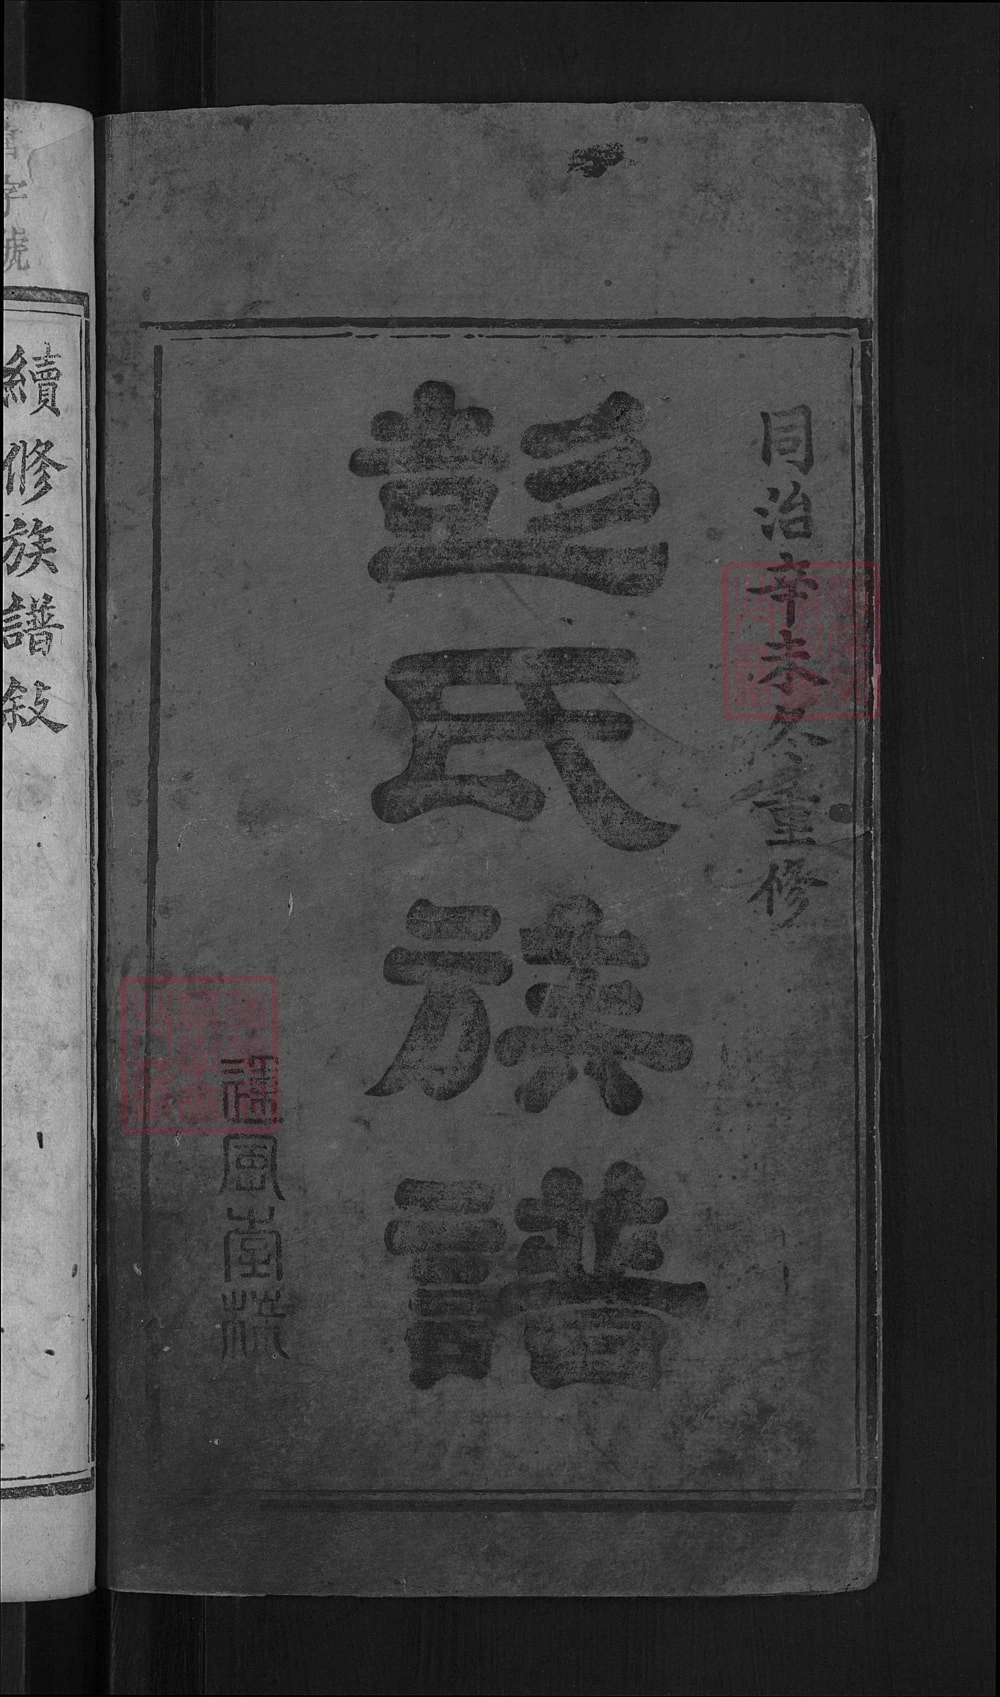 同治辛未冬重修
彭氏族譜
風堂梓
字號
續修族譜敘